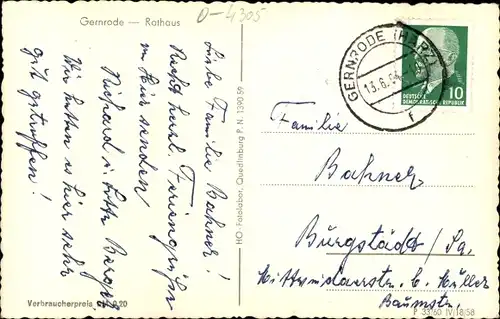 Gernrode — Rathaus
0-4305
Liebe Familie Bahner!
Recht herzl. Feriengrüße
von hier senden
Richard u. Lotte Berger
Wir hatten es hier sehr
gut getroffen!
Verbraucherpreis 0,20
HO-Fotolabor, Quedlinburg P. N. 1390 59
GERNRODE (HARZ)
13.6.
f
DEUTSCHE
DEMOKRATISCHE REPUBLIK
10
Familie
Bahner
Burgstädt / Sa.
b. Müller
Baumstr.
P 33/60 IV/18/58